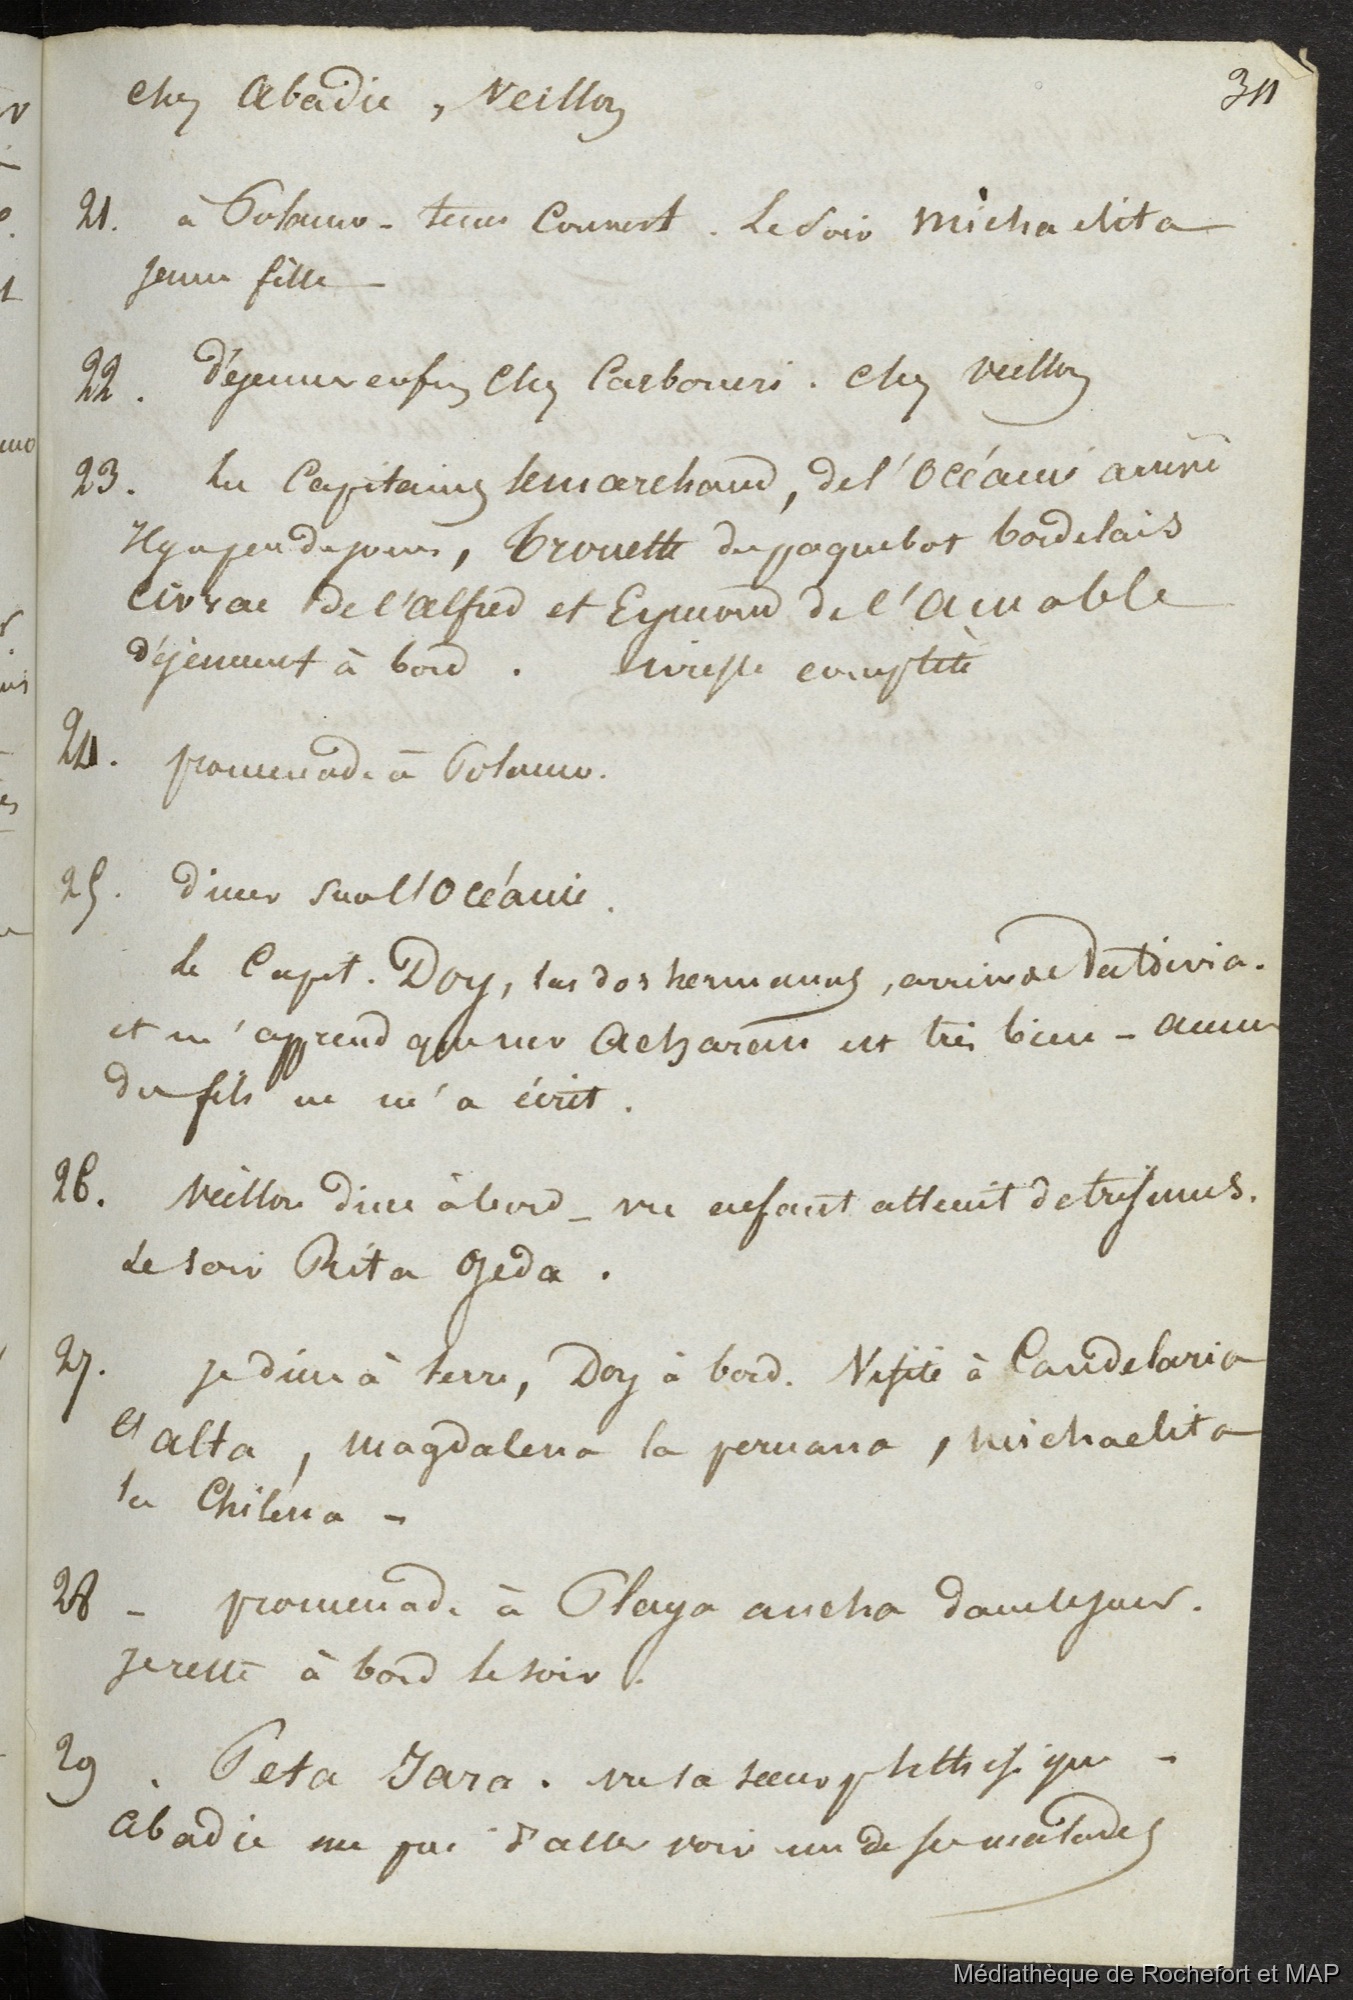 34
chez Abadie, Veillon
21. à Polanco - tems couvert. Le soir Michaelita
jeune fille -
22. déjeuner enfin chez Carboneri. chez Veillon
23. Les Capitaines Lemarchand, de l'Océanie arrivé
il y a peu de jours, Brouette du paquebot bordelais
Civrac de l'Alfred et Eymond de l'Aimable
déjeunent à bord. ivresse complète
24. promenade à Polanco.
25. diner sur l'Océanie.
le Capit. Doy, las dos hermanas, arrive de Valdivia.
et m'apprend que mer Acharan est très bien - aucun
des fils ne m'a écrit.
26. Veillon dine à bord - vu enfant atteint de trismus.
Le soir Rita Ojeda.
27. je dine à terre, Doy à bord. Visite à Candelaria
el alta, Magdalena la peruana, Michaelita
la Chilena -
28 - promenade à Playa ancha dans le jour.
je reste à bord le soir.
29. Peta Jara. vu sa soeur phthisique -
Abadie me prie d'aller voir un de ses malades
Médiathèque de Rochefort et MAP